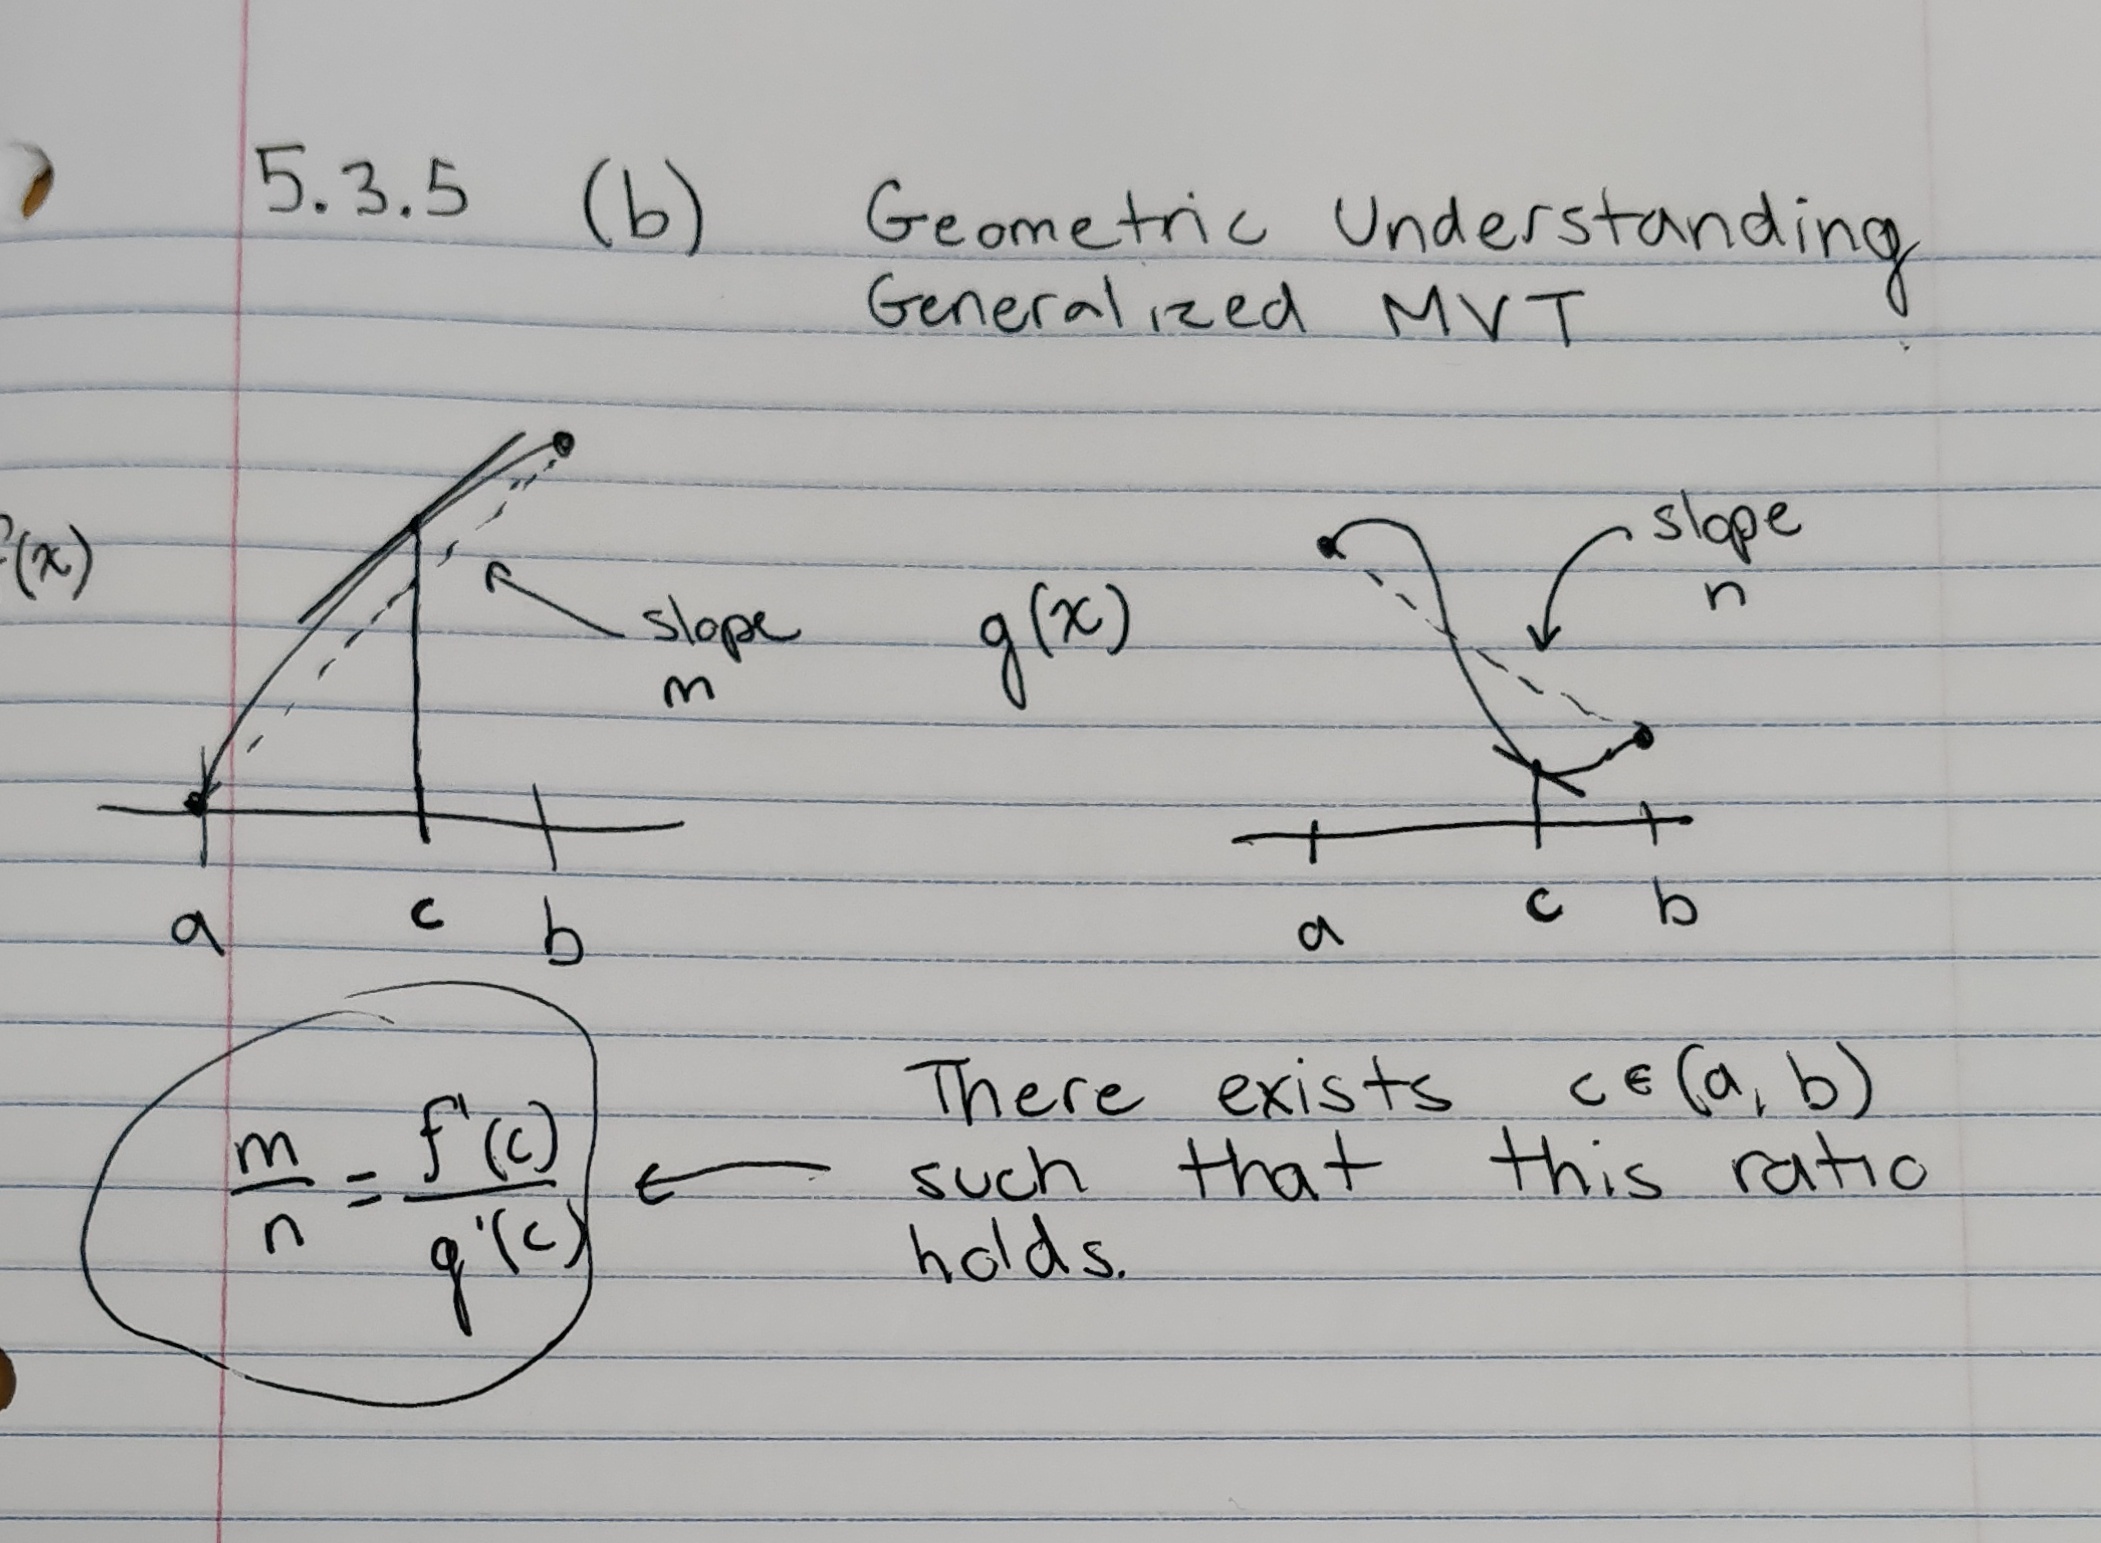 5.3.5 (b) Geometric Understanding
Generalized MVT
f(x)
slope
m
g(x)
slope
n
a c b
a c b
m/n = f'(c)/g'(c) ← There exists c ∈ (a, b)
such that this ratio
holds.